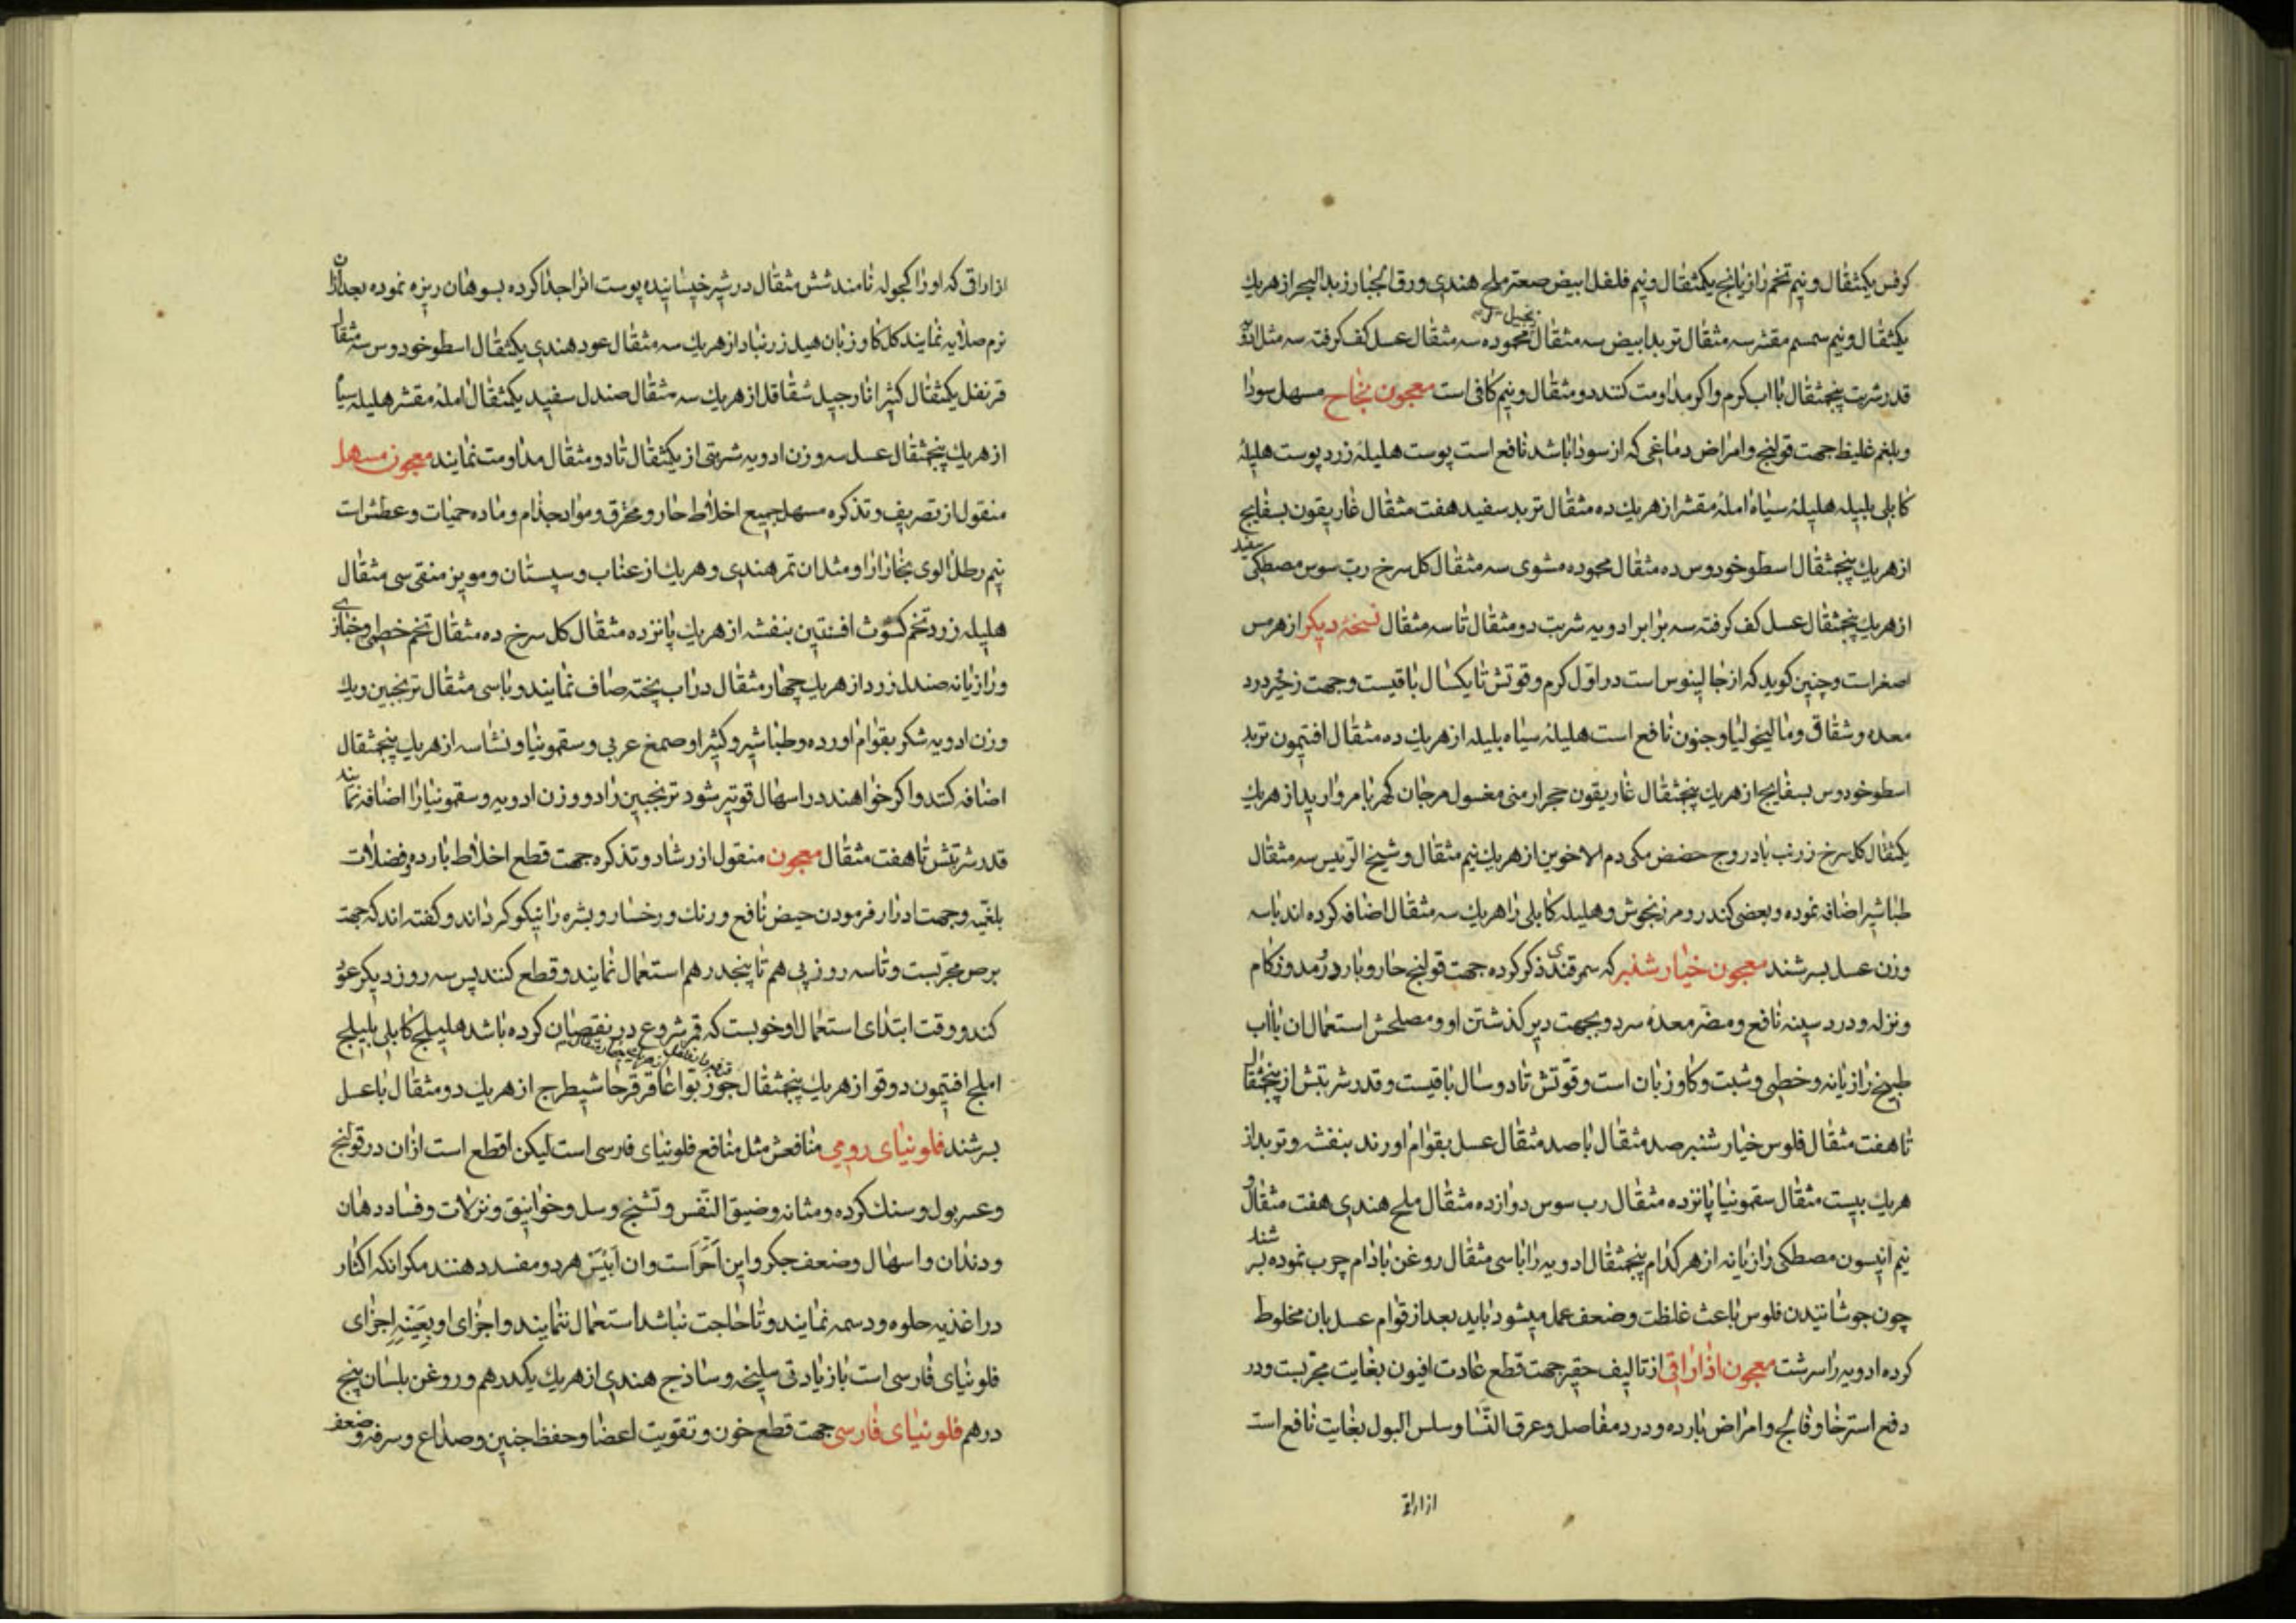 كرفس يكمثقال و نيم تخم رازيانج يكمثقال و نيم فلفل ابيض صعتر ملح هندي ورق الجبار زبد البحر از هر يك
يكمثقال و نيم سمسم مقشر سه مثقال تربد ابيض سه مثقال محموده سه مثقال عسل كف كرفته سه مثل ادويه
قدر شربت پنجمثقال با اب كرم و اكر مداومت كنند دو مثقال و نيم كافى است معجون نجاح مسهل سودا
و بلغم غليظ جهت قولنج و امراض دماغى كه از سودا باشد نافع است پوست هليلهٔ زرد پوست هليلهٔ
كابلى بليله هليلهٔ سياه املهٔ مقشر از هر يك ده مثقال تربد سفيد هفت مثقال غاريقون بسفايج
از هر يك پنجمثقال اسطوخودوس ده مثقال محموده مشوى سه مثقال كل سرخ رب سوس مصطكى سفيد
از هر يك پنجمثقال عسل كف كرفته سه برابر ادويه شربت دو مثقال تا سه مثقال نسخهٔ ديكر از هرمس
اصغر است و چنين كويد كه از جالينوس است در اول كرم و قوتش تا يكسال باقيست و جهت زخير درد
معده و شقاق و ماليخوليا و جنون نافع است هليلهٔ سياه بليله از هر يك ده مثقال افتيمون تربد
اسطوخودوس بسفايج از هر يك پنجمثقال غاريقون حجر ارمنى مغسول مرجان كهربا مرواريد از هر يك
يكمثقال كل سرخ زرنب بادروج حضض مكى دم الاخوين از هر يك نيم مثقال و شيخ الرئيس سه مثقال
طباشير اضافه نموده و بعضى كندر و مرزنجوش و هليلهٔ كابلى را هر يك سه مثقال اضافه كرده اند با سه
وزن عسل بسرشند معجون خيار شنبر كه سمرقندى ذكر كرده جهت قولنج حار و بارد و رمد و زكام
و نزله و درد سينه نافع و مضر معدهٔ سرد و بجهت دير كذشتن او و مصلحش استعمال ان با اب
طبيخ رازيانه و خطمى و شبت و كاوزبان است و قوتش تا دو سال باقيست و قدر شربتش از پنجمثقال
تا هفت مثقال فلوس خيار شنبر صد مثقال با صد مثقال عسل بقوام اورند بنفشه و تربد از
هر يك بيست مثقال سقمونيا پانزده مثقال رب سوس دوازده مثقال ملح هندى هفت مثقال و
نيم انيسون مصطكى رازيانه از هر كدام پنجمثقال ادويه را با سى مثقال روغن بادام چرب نموده بسرشند
چون جوشانيدن فلوس باعث غلظت و ضعف عمل ميشود بايد بعد از قوام عسل بان مخلوط
كرده ادويه را سرشت معجون اذاراقى از تاليف حقير جهت قطع عادت افيون بغايت مجربست و در
دفع استرخا و فالج و امراض بارده و درد مفاصل و عرق النسا و سلس البول بغايت نافع است
ازاراقى
ازاراقى كه او را كچوله نامند شش مثقال در شير خيسانيده پوست انرا جدا كرده بسوهان ريزه نموده بعد از ان
نرم صلايه نمايند كل كاوزبان هيل زرنباد از هر يك سه مثقال عود هندى يكمثقال اسطوخودوس سه مثقال
قرنفل يكمثقال كثيرا نارجيل شقاقل از هر يك سه مثقال صندل سفيد يكمثقال املهٔ مقشر هليله سياه
از هر يك پنجمثقال عسل سه وزن ادويه شربتى از يكمثقال تا دو مثقال مداومت نمايند معجون مسهل
منقول از تصريف و تذكره مسهل جميع اخلاط حار و محترق و مواد جذام و ماده حميات و عطش است
نيم رطل الوى بخارا را و مثل ان تمر هندى و هر يك از عناب و سپستان و مويز منقى سى مثقال
هليله زرد تخم كشوث افسنتين بنفشه از هر يك پانزده مثقال كل سرخ ده مثقال تخم خطمى و خبازى
و رازيانه صندل زرد از هر يك چهار مثقال در اب پخته صاف نمايند و با سى مثقال ترنجبين و يك
وزن ادويه شكر بقوام اورده و طباشير و كثيرا و صمغ عربى و سقمونيا و نشاسه از هر يك پنجمثقال
اضافه كنند و اكر خواهند در اسهال قوتير شود ترنجبين را دو وزن ادويه و سقمونيا را اضافه نمايند
قدر شربتش تا هفت مثقال معجون منقول از رشاد و تذكره جهت قطع اخلاط بارده و فضلات
بلغميه و جهت ادرار فرمودن حيض نافع و رنك و رخسار و بشره را نيكو كرداند و كفته اند كه جهت
برص مجربست و تا سه روز پى هم تا پنجدرهم استعمال نمايند و قطع كنند پس سه روز ديكر عود
كند و وقت ابتداى استعمال او خوبست كه قمر شروع در نقصان كرده باشد هليلج كابلى بليلج
املج افتيمون دوقو از هر يك پنجمثقال جوز بوا عاقرقرحا شيطرج از هر يك دو مثقال با عسل
بسرشند فلونياى رومى منافعش مثل منافع فلونياى فارسى است ليكن اقطع است از ان در قولنج
و عسر بول و سنك كرده و مثانه و ضيق النفس و تشنج و سل و خوانيق و نزلات و فساد دهان
و دندان و اسهال و ضعف جكر و اين احر است و ان ابيس هر دو مفسد دهنند مكر انكه اكثار
در اغذيه حلوه و دسمه نمايند و تا حاجت نباشد استعمال ننمايند و اجزاى او بعينه اجزاى
فلونياى فارسى است با زيادتى سليخه و ساذج هندى از هر يك يكدرهم و روغن بلسان پنج
درهم فلونياى فارسى جهت قطع خون و تقويت اعضا و حفظ جنين و صداع و سرفه و ضعف